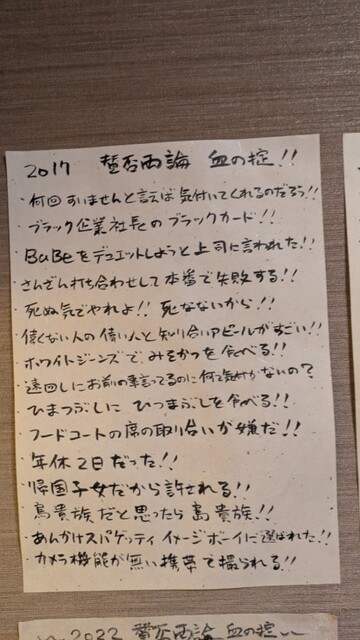 2017 賛否両論 血の掟!!
・何回すいませんと言えば気付いてくれるのだろう!!
・ブラック企業社長とのブラックカード!!
・BaBeをデュエットしようと上司に言われた!!
・さんざん打ち合わせして本番で失敗する!!
・死ぬ気でやれよ!! 死なないから!!
・偉くない人の偉い人と知り合いアピールがすごい!!
・ホワイトジーンズでみるかつを食べる!!
・遠回しにお前の事言ってるのに何で気付かないの?
・ひまつぶしにひつまぶしを食べる!!
・フードコートの席の取り合いが嫌だ!!
・年休2日だった!!
・帰国子女だから許される!!
・鳥貴族だと思ったら島貴族!!
・あんかけスパゲッティイメージボーイに選ばれた!!
・カメラ機能が無い携帯で撮られる!!
2022 賛否両論 血の掟